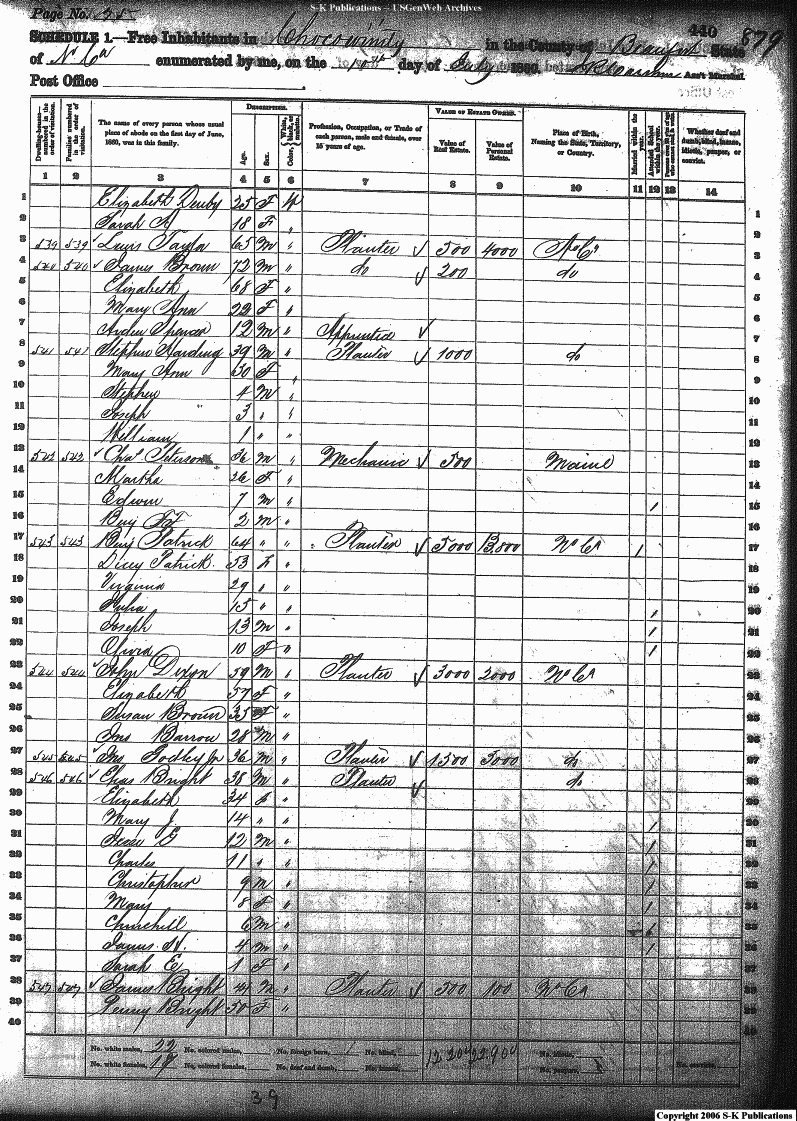 S-K Publications – USGenWeb Archives
Page No. 440 879
SCHEDULE 1.—Free Inhabitants in Chocowinity in the County of Beaufort State
of No Ca enumerated by me, on the day of July 1860. Ass't Marshal.
Post Office
Dwelling-houses—numbered in the order of visitation. Families numbered in the order of visitation. The name of every person whose usual place of abode on the first day of June, 1860, was in this family. Description. Age. Sex. Color, White, black, or mulatto. Profession, Occupation, or Trade of each person, male and female, over 15 years of age. Value of Estate Owned. Value of Real Estate. Value of Personal Estate. Place of Birth, Naming the State, Territory, or Country. Married within the year. Attended School within the year. Whether deaf and dumb, blind, insane, idiotic, pauper, or convict.
1 2 3 4 5 6 7 8 9 10 11 12 13 14
1 Elizabeth 25 F W 1
2 Sarah A 18 F " 2
3 539 539 Luis Tayloe 65 M " Planter 500 4000 No Ca 3
4 540 540 James Brown 72 M " do 200 do 4
5 Elizabeth 68 F " 5
6 Mary Ann 22 F " 6
7 Arden Spencer 12 M " Apprentice 7
8 541 541 Stephen Harding 39 M " Planter 1000 do 8
9 Mary Ann 30 F " 9
10 Stephen 4 M " 10
11 Joseph 3 " " 11
12 William 1 " " 12
13 542 542 Chas Peterson 36 M " Mechanic 500 Maine 13
14 Martha 26 F " 14
15 Edwin 7 M " / 15
16 Benj 2 M " 16
17 543 543 Benj Patrick 64 " " Planter 5000 13,800 No Ca / 17
18 Dicey Patrick 53 F " 18
19 Virginia 29 " " 19
20 Julia 15 " " / 20
21 Joseph 13 M " / 21
22 Olivia 10 F " / 22
23 544 544 John Dixon 59 M " Planter 3000 2000 No Ca 23
24 Elizabeth 57 F " 24
25 Susan Brown 35 F " 25
26 Jns Barrow 28 M " 26
27 545 545 Jns Godley Jr 36 M " Planter 1500 3000 do 27
28 546 546 Chas Bright 38 M " Planter do 28
29 Elizabeth 34 F " 29
30 Mary J 14 " " / 30
31 Jesse G 12 M " / 31
32 Charles 11 " " / 32
33 Christopher 9 M " / 33
34 Mary 8 F " / 34
35 Churchill 6 M " / 35
36 James W. 4 M " / 36
37 Sarah E 1 F " 37
38 547 547 James Bright M " Planter 500 100 No Ca 38
39 Penny Bright 50 F " 39
40 40
No. white males, 22 No. colored males, No. foreign born, No. blind,
No. white females, 17 No. colored females, No. deaf and dumb, No. insane, No. idiotic, No. paupers, No. convicts,
39
Copyright 2006 S-K Publications